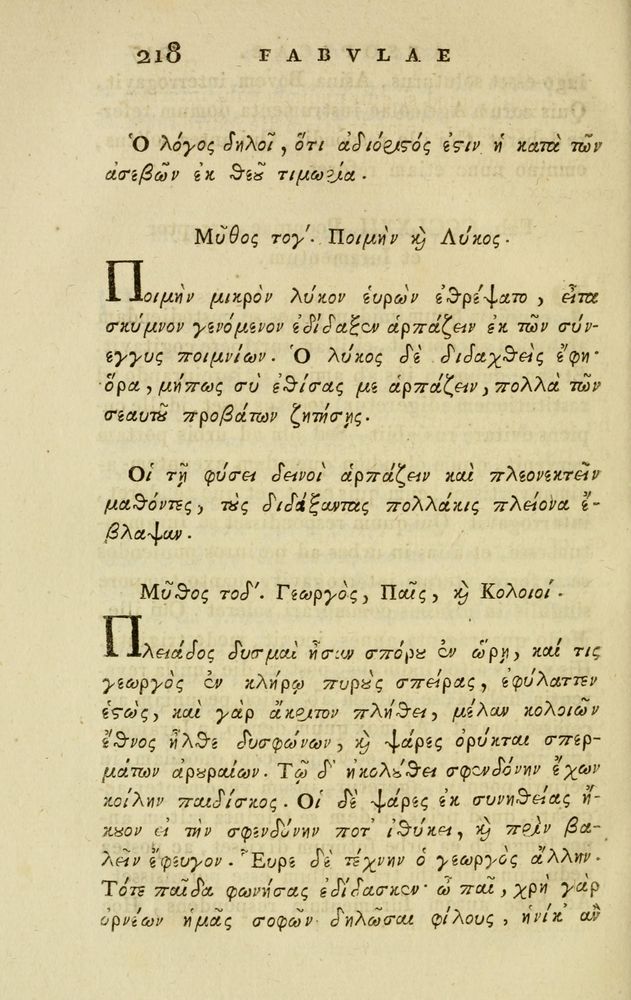 218 FABVLAE
Ὁ λόγος δηλοῖ, ὅτι ἀδιόριστός ἐστιν ἡ κατὰ τῶν
ἀσεβῶν ἐκ θεοῦ τιμωρία.
Μῦθος τογ΄. Ποιμὴν καὶ Λύκος.
Ποιμὴν μικρὸν λύκον ἑυρὼν ἐθρέψατο, εἶτα
σκύμνον γενόμενον ἐδίδαξεν ἁρπάζειν ἐκ τῶν σύν-
εγγυς ποιμνίων. Ὁ λύκος δὲ διδαχθεὶς ἔφη·
ὅρα, μήπως σὺ ἐθίσας με ἁρπάζειν, πολλὰ τῶν
σεαυτοῦ προβάτων ζητήσῃς.
Οἱ τῇ φύσει δεινοὶ ἁρπάζειν καὶ πλεονεκτεῖν
μαθόντες, τοὺς διδάξαντας πολλάκις πλείονα ἔ-
βλαψαν.
Μῦθος τοδ΄. Γεωργὸς, Παῖς, καὶ Κολοιοί.
Πλειάδος δυσμαὶ ἦσαν σπόρου ἐν ὥρῃ, καί τις
γεωργὸς ἐν κλήρῳ πυροὺς σπείρας, ἐφύλαττεν
ἑστὼς, καὶ γὰρ ἄκριτον πλήθει, μέλαν κολοιῶν
ἔθνος ἦλθε δυσφώνων, καὶ ψάρες ὀρύκται σπερ-
μάτων ἀρουραίων. Τῷ δ' ἠκολούθει σφενδόνην ἔχων
κοίλην παιδίσκος. Οἱ δὲ ψάρες ἐκ συνηθείας ἤ-
κουον εἰ τὴν σφενδόνην ποτ' ἰθύκει, καὶ πρὶν βα-
λεῖν ἔφευγον. Ἕυρε δὲ τέχνην ὁ γεωργὸς ἄλλην.
Τότε παῖδα φωνήσας ἐδίδασκεν· ὦ παῖ, χρὴ γὰρ
ὀρνέων ἡμᾶς σοφῶν δηλῶσαι φίλους, ἡνίκ' ἂν